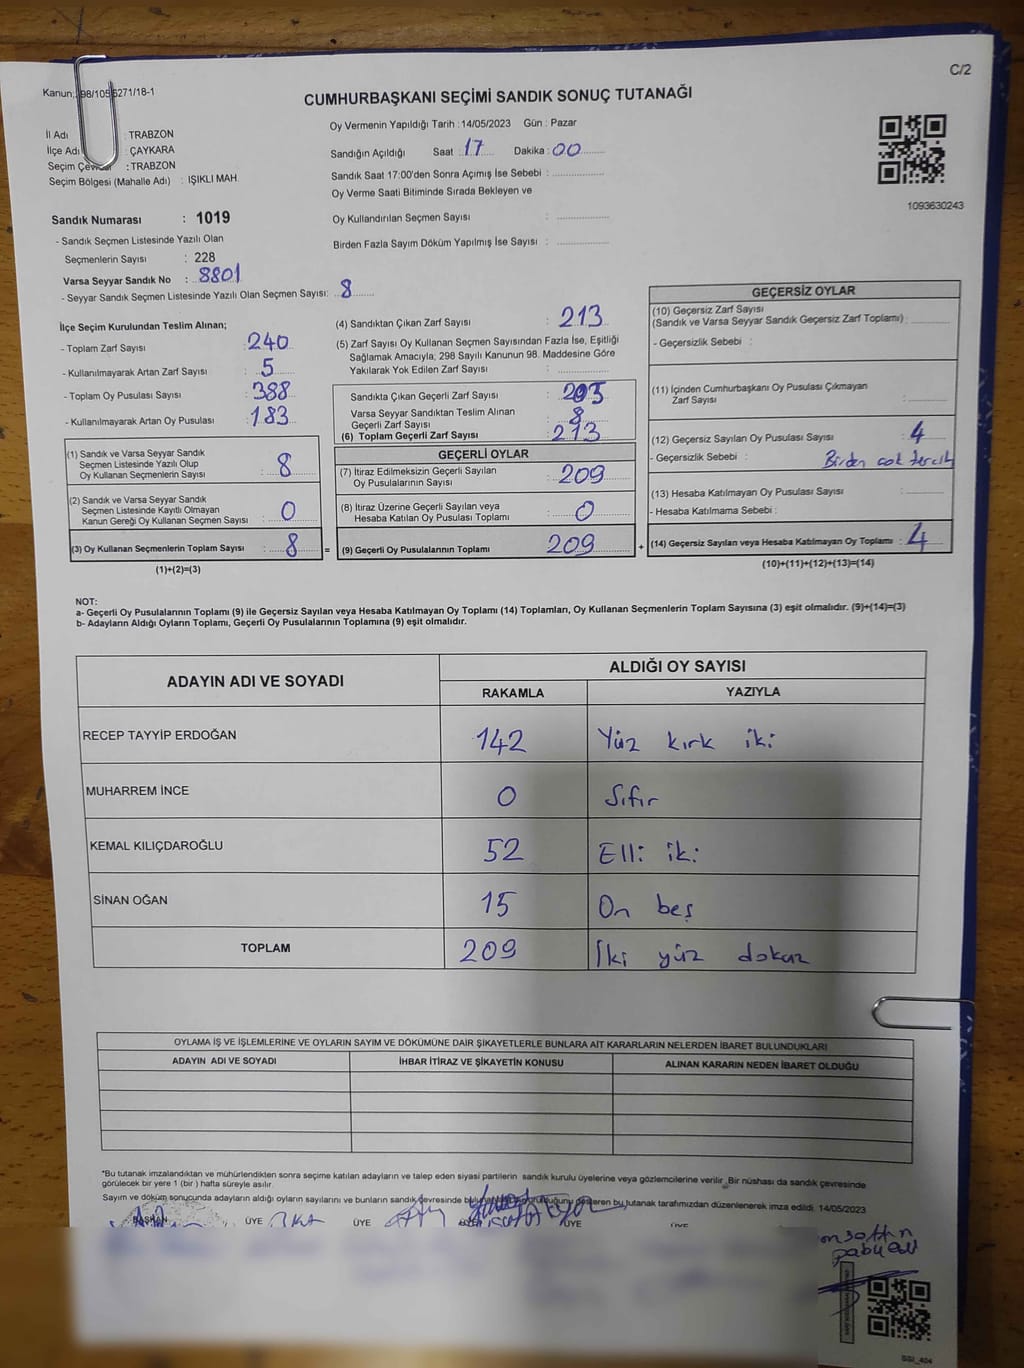 C/2
CUMHURBAŞKANI SEÇİMİ SANDIK SONUÇ TUTANAĞI
İl Adı : TRABZON
İlçe Adı : ÇAYKARA
Seçim : TRABZON
Seçim Bölgesi (Mahalle Adı) : IŞIKLI MAH.
Oy Vermenin Yapıldığı Tarih : 14/05/2023 Gün : Pazar
Sandığın Açıldığı Saat : 17 Dakika : 00
Sandık Saat 17:00'den Sonra Açımış İse Sebebi :
Oy Verme Saati Bitiminde Sırada Bekleyen ve
Oy Kullandırılan Seçmen Sayısı :
Birden Fazla Sayım Döküm Yapılmış İse Sayısı :
1093630243
Sandık Numarası : 1019
- Sandık Seçmen Listesinde Yazılı Olan
Seçmenlerin Sayısı : 228
Varsa Seyyar Sandık No : 8801
- Seyyar Sandık Seçmen Listesinde Yazılı Olan Seçmen Sayısı: 8
İlçe Seçim Kurulundan Teslim Alınan;
- Toplam Zarf Sayısı : 240
- Kullanılmayarak Artan Zarf Sayısı : 5
- Toplam Oy Pusulası Sayısı : 388
- Kullanılmayarak Artan Oy Pusulası : 183
(1) Sandık ve Varsa Seyyar Sandık
Seçmen Listesinde Yazılı Olup
Oy Kullanan Seçmenlerin Sayısı : 8
(2) Sandık ve Varsa Seyyar Sandık
Seçmen Listesinde Kayıtlı Olmayan
Kanun Gereği Oy Kullanan Seçmen Sayısı : 0
(3) Oy Kullanan Seçmenlerin Toplam Sayısı : 8 =
(1)+(2)=(3)
(4) Sandıktan Çıkan Zarf Sayısı : 213
(5) Zarf Sayısı Oy Kullanan Seçmen Sayısından Fazla İse, Eşitliği
Sağlamak Amacıyla, 298 Sayılı Kanunun 98. Maddesine Göre
Yakılarak Yok Edilen Zarf Sayısı :
Sandıkta Çıkan Geçerli Zarf Sayısı : 205
Varsa Seyyar Sandıktan Teslim Alınan
Geçerli Zarf Sayısı : 8
(6) Toplam Geçerli Zarf Sayısı : 213
GEÇERLİ OYLAR
(7) İtiraz Edilmeksizin Geçerli Sayılan
Oy Pusulalarının Sayısı : 209
(8) İtiraz Üzerine Geçerli Sayılan veya
Hesaba Katılan Oy Pusulası Toplamı : 0
(9) Geçerli Oy Pusulalarının Toplamı 209 +
GEÇERSİZ OYLAR
(10) Geçersiz Zarf Sayısı
(Sandık ve Varsa Seyyar Sandık Geçersiz Zarf Toplamı) :
- Geçersizlik Sebebi :
(11) İçinden Cumhurbaşkanı Oy Pusulası Çıkmayan
Zarf Sayısı :
(12) Geçersiz Sayılan Oy Pusulası Sayısı : 4
- Geçersizlik Sebebi : Birden çok tercih
(13) Hesaba Katılmayan Oy Pusulası Sayısı :
- Hesaba Katılmama Sebebi :
(14) Geçersiz Sayılan veya Hesaba Katılmayan Oy Toplamı : 4
(10)+(11)+(12)+(13)=(14)
NOT:
a- Geçerli Oy Pusulalarının Toplamı (9) ile Geçersiz Sayılan veya Hesaba Katılmayan Oy Toplamı (14) Toplamları, Oy Kullanan Seçmenlerin Toplam Sayısına (3) eşit olmalıdır. (9)+(14)=(3)
b- Adayların Aldığı Oyların Toplamı, Geçerli Oy Pusulalarının Toplamına (9) eşit olmalıdır.
ADAYIN ADI VE SOYADI
ALDIĞI OY SAYISI
RAKAMLA YAZIYLA
RECEP TAYYİP ERDOĞAN 142 Yüz kırk iki
MUHARREM İNCE 0 Sıfır
KEMAL KILIÇDAROĞLU 52 Elli iki
SİNAN OĞAN 15 On beş
TOPLAM 209 İki yüz dokuz
OYLAMA İŞ VE İŞLEMLERİNE VE OYLARIN SAYIM VE DÖKÜMÜNE DAİR ŞİKAYETLERLE BUNLARA AİT KARARLARIN NELERDEN İBARET BULUNDUKLARI
ADAYIN ADI VE SOYADI İHBAR İTİRAZ VE ŞİKAYETİN KONUSU ALINAN KARARIN NEDEN İBARET OLDUĞU
*Bu tutanak imzalandıktan ve mühürlendikten sonra seçime katılan adayların ve talep eden siyasi partilerin sandık kurulu üyelerine veya gözlemcilerine verilir. Bir nüshası da sandık çevresinde
görülecek bir yere 1 (bir) hafta süreyle asılır.
Sayım ve döküm sonucunda adayların aldığı oyların sayılarını ve bunların sandık çevresinde bu tutanak tarafımızdan düzenlenerek imza edildi. 14/05/2023
BAŞKAN ÜYE ÜYE ÜYE ÜYE